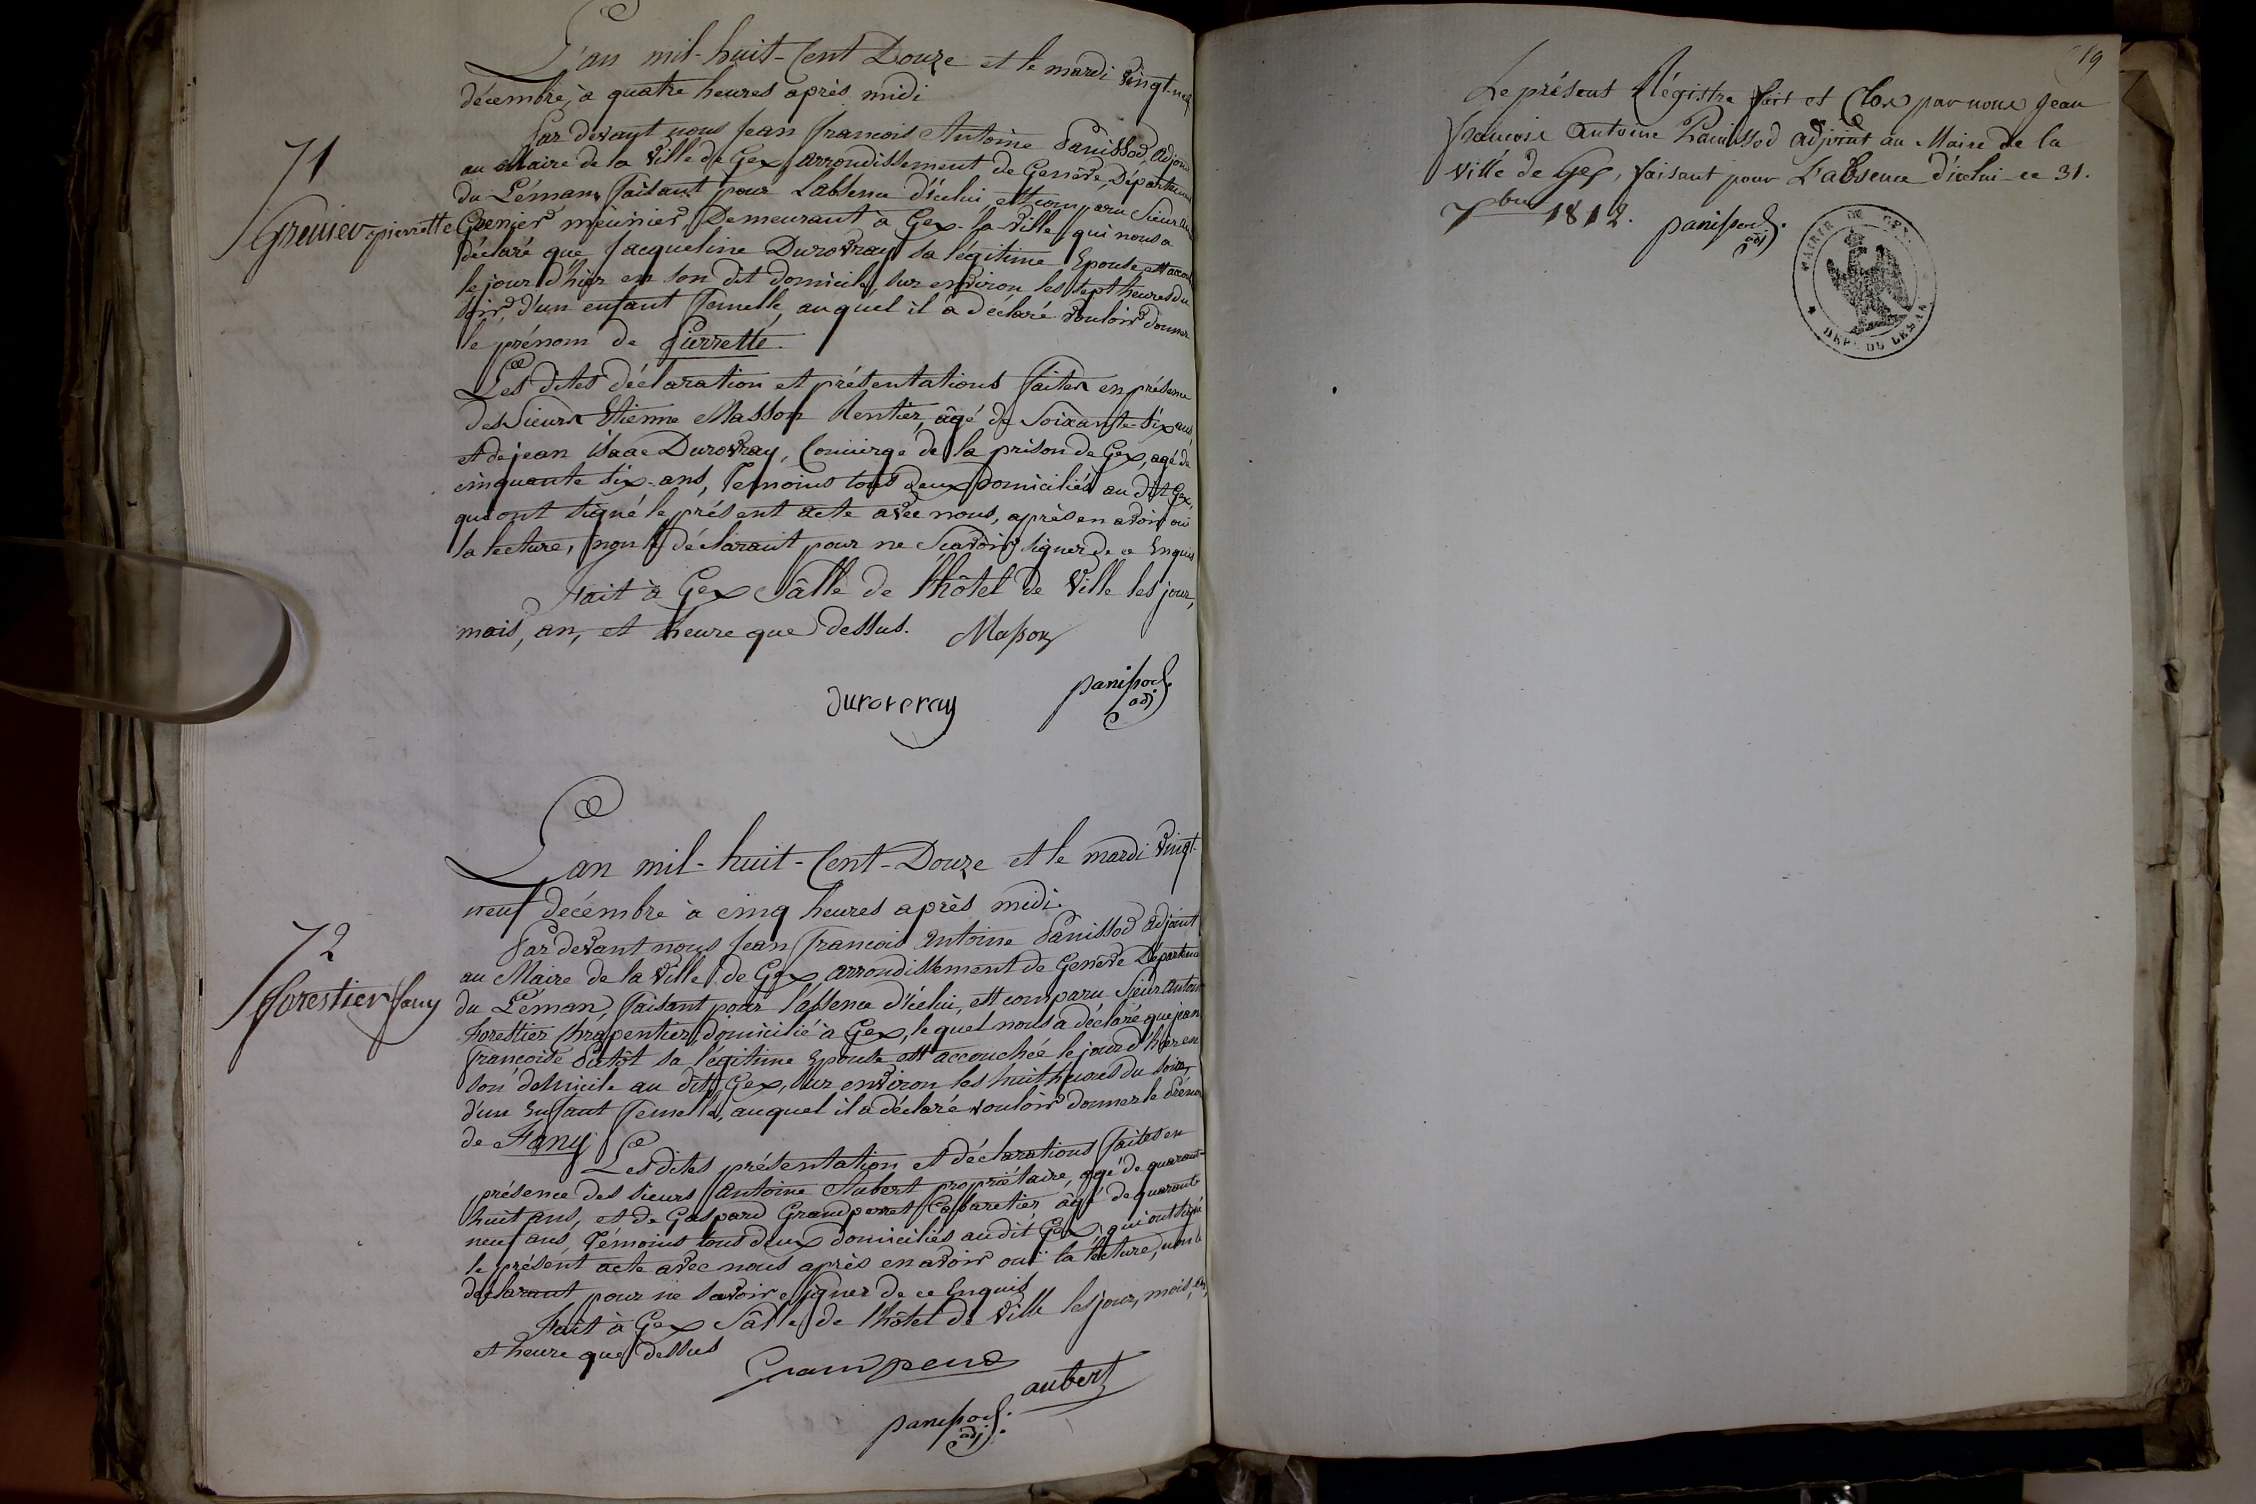 L'an mil-huit-Cent Douze et le mardi vingt-neuf
décembre, à quatre heures après midi
71
Grenier pierrette
Par devant nous Jean francois Antoine Panissod, adjoint
au Maire de la Ville de Gex, arrondissement de Genève, Département
du Léman, faisant pour l'absence d'icelui, est comparu Sieur
Grenier meunier, Demeurant à Gex-la-ville, qui nous a
déclaré que Jacqueline Durovray sa légitime Epouse est accou
le jour d'hier en son dit domicile, sur environ les sept heures du
soir, d'un enfant femelle, auquel il a déclaré vouloir donner
le prénom de Pierrette.
Les dites déclaration et présentations faites en présence
des Sieurs Etienne Masson Rentier, âgé de soixante-six ans
et de jean isaac Durovray, Concierge de la prison de Gex, agé de
cinquante six-ans, Temoins tous deux domiciliés au dit Gex,
qui ont signé le présent acte avec nous, après en avoir oui
la lecture, non le déclarant pour ne Scavoir signer de ce Enquis
Fait à Gex Sâlle de l'hôtel de Ville les jour,
mois, an, et heure que dessus. Masson
Duroveray
panissod
adj
L'an mil-huit-Cent-Douze et le mardi vingt-
neuf décembre à cinq heures après midi.
72
forestier fany
Par devant nous Jean francois Antoine Panissod adjoint
au Maire de la Ville de Gex arrondissement de Genève Départem
du Léman, faisant pour l'absence d'icelui, est comparu Sieur Antoine
Forestier Chrapentier, domicilié à Gex, le quel nous a déclaré que jean
francoise sa légitime Epouse est accouchée le jour d'hier en
son domicile au dit Gex, sur environ les huit heures du soir,
d'un Enfant femelle, auquel il a déclaré vouloir donner le Prénom
de Fany
Les dites présentation et déclarations faites en
présence des sieurs Antoine Aubert propriétaire, agé de quarante
huit ans, et de Gaspard Grandperret Cabaretier âgé de quarante
neuf ans, Témoins tous deux domiciliés audit Gex, qui ont signé
le présent acte avec nous après en avoir ouï la lecture, non le
déclarant pour ne savoir signer de ce Enquis
Fait à Gex Sâlle de l'hôtel de Ville les jour, mois, an,
et heure que dessus
aubert
panissod.
adj.
19
Le présent Régistre fait et Clos par nous Jean
francois Antoine Panissod adjoint au Maire de la
Ville de Gex, faisant pour L'absence d'icelui ce 31.
Xbre 1812. panissod.
adj
MAIRIE DE GEX.
DEPT. DU LEMAN